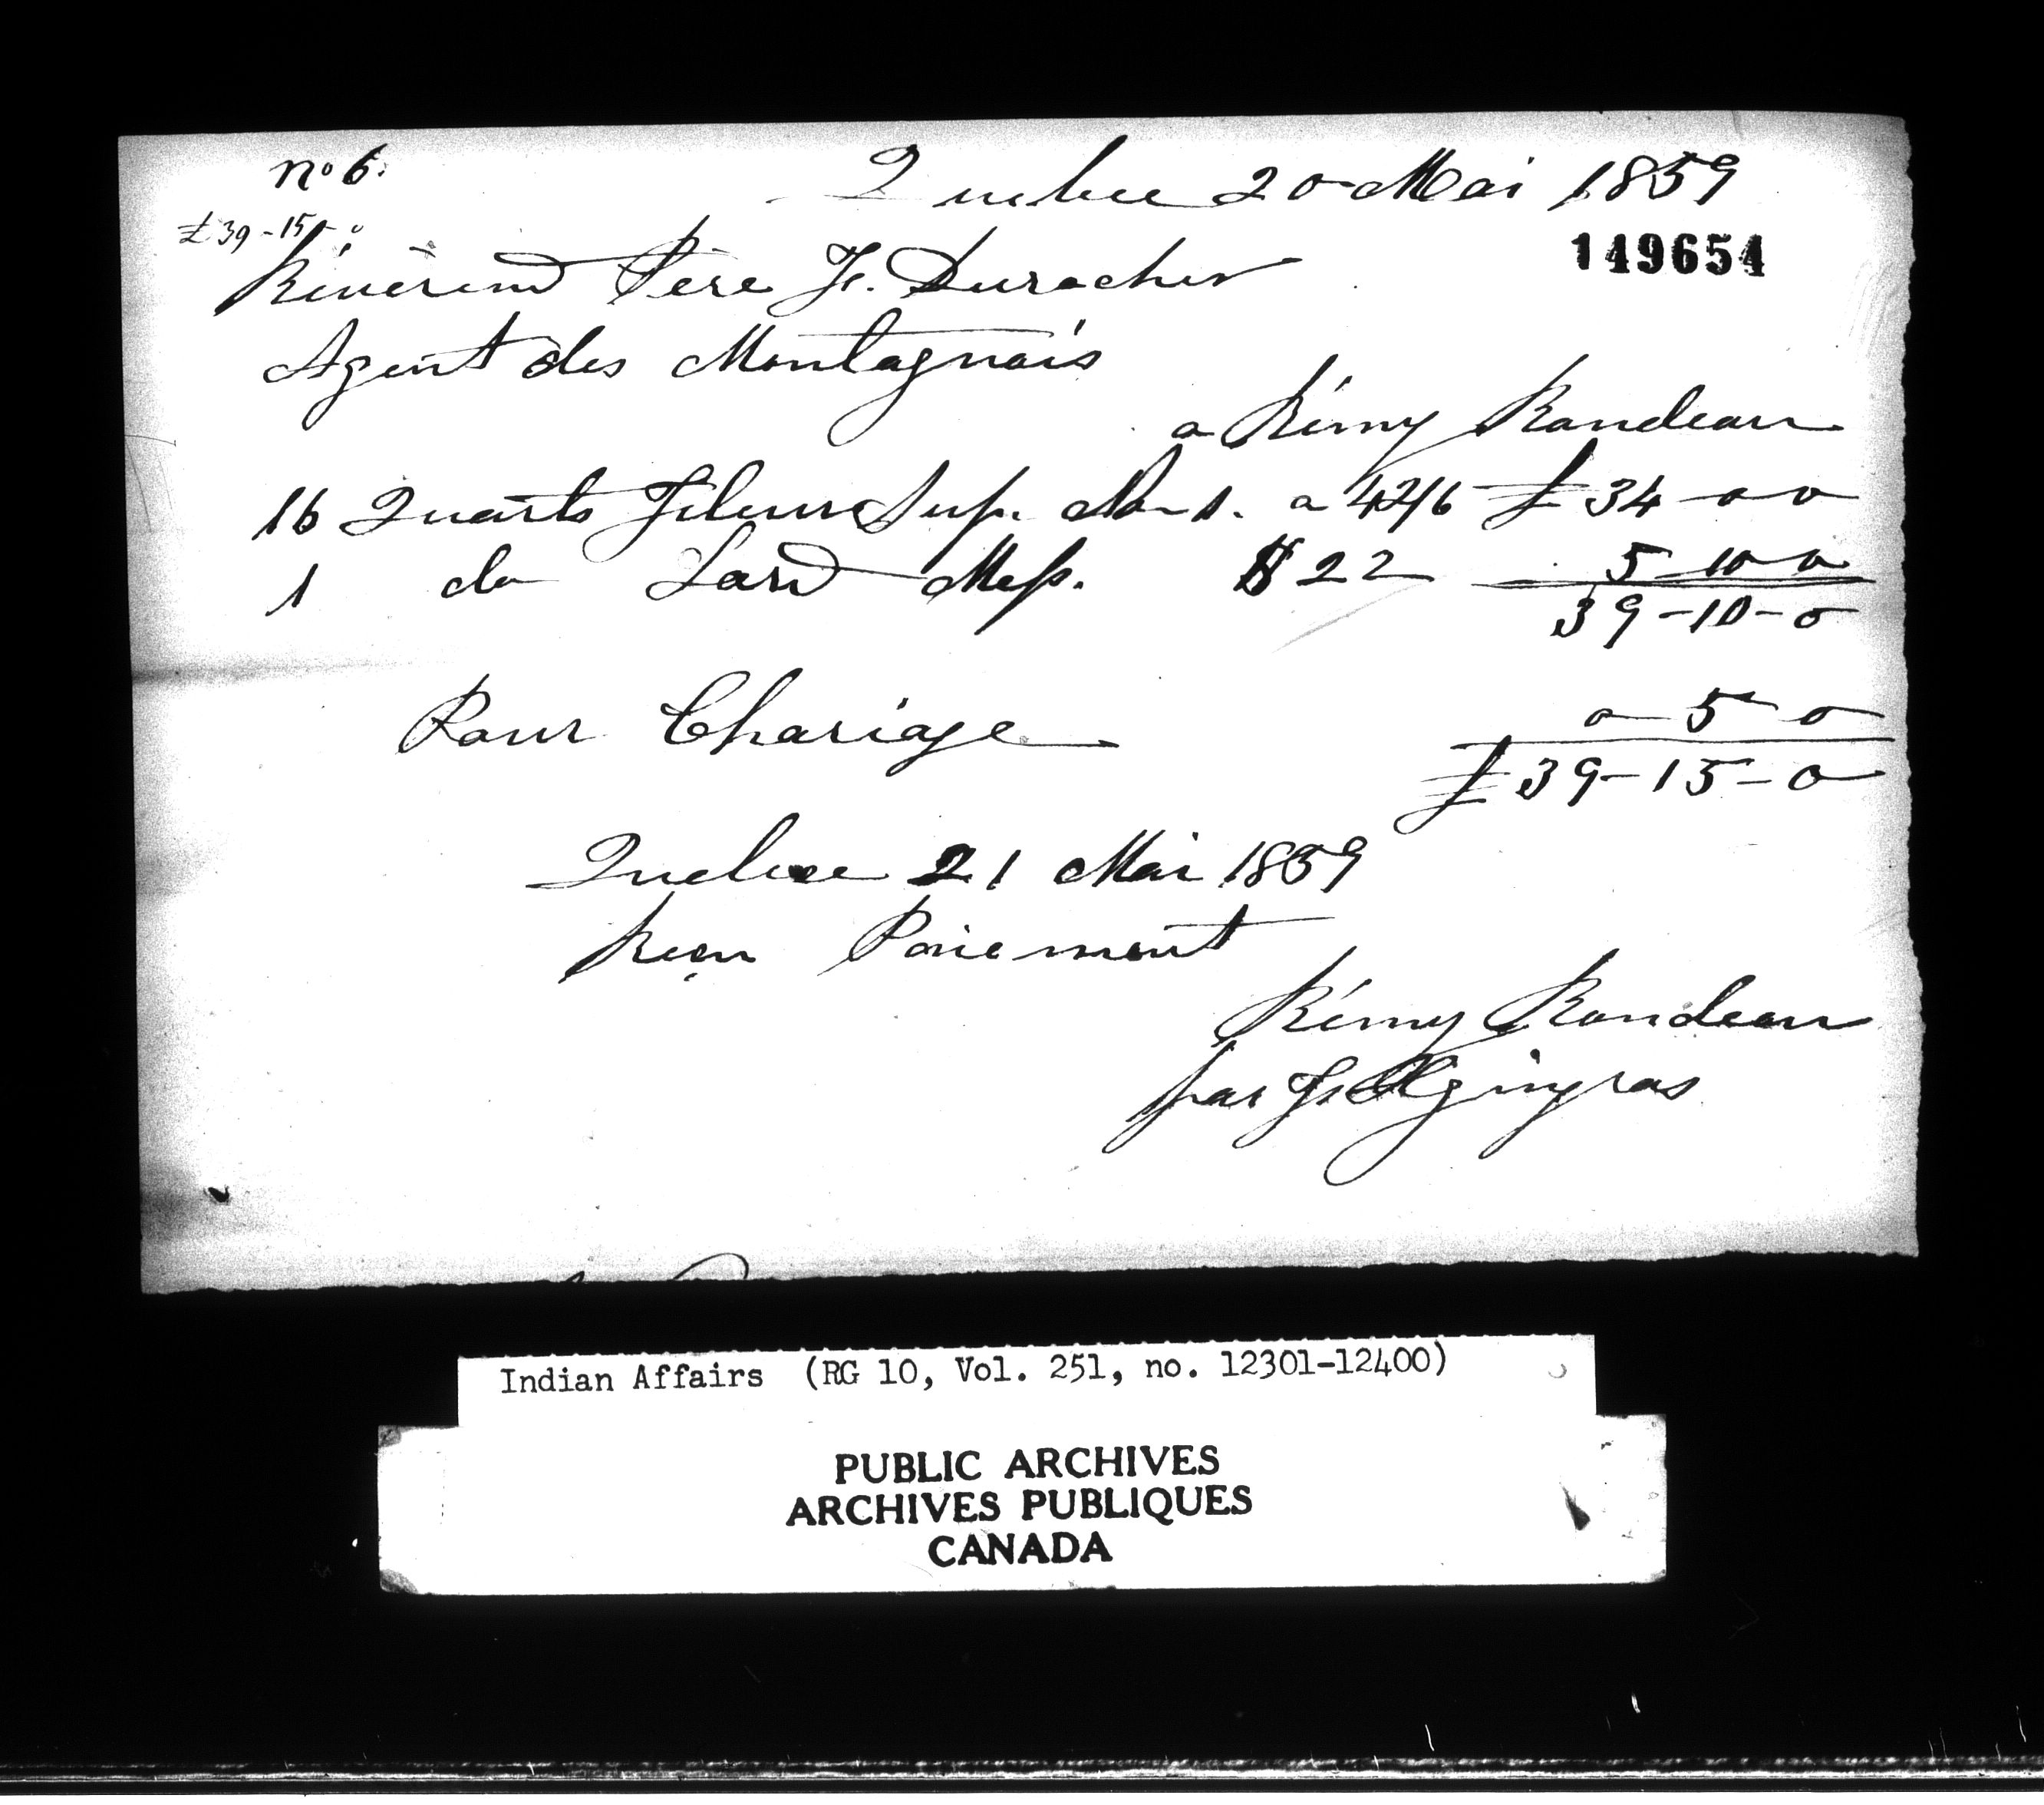 no 6.
Quebec 20 Mai 1859
£39-15-0
149654
Révérend Père Fs. Durocher
Agent des Montagnais
a Rémy Randeau
16 Quarts Fleure Sup. No 1. a 42/6 £ 34 0 0
1 do Lard Mess. $22 5 10 0
39-10-0
Pour Chariage 0 5 0
£ 39-15-0
Quebec 21 Mai 1859
Reçu Paiement
Rémy Randeau
par Gingras
Indian Affairs (RG 10, Vol. 251, no. 12301-12400)
PUBLIC ARCHIVES
ARCHIVES PUBLIQUES
CANADA